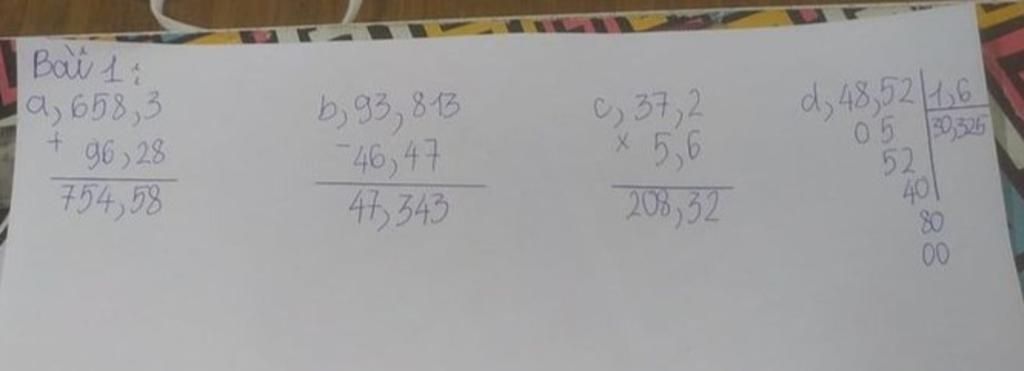 Bài 1:
a, 658,3 b, 93,813 c, 37,2 d, 48,52 1,6
+ 96,28 - 46,47 x 5,6 05 30,325
754,58 47,343 208,32 52
40
80
00